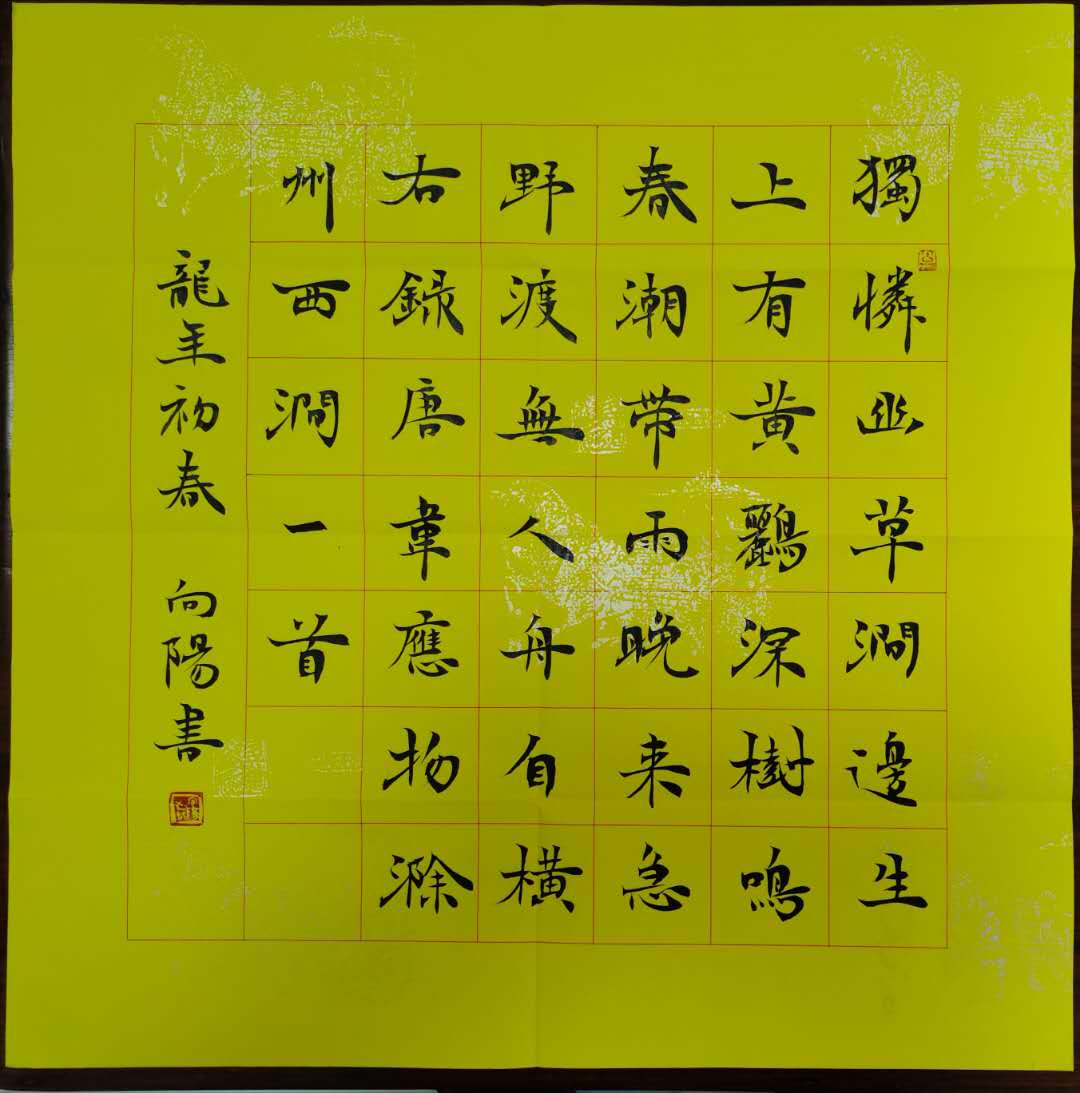 獨憐幽草澗邊生
上有黄鸝深樹鳴
春潮带雨晚来急
野渡無人舟自橫
右録唐韋應物滁
州西澗一首
龍年初春 向陽書